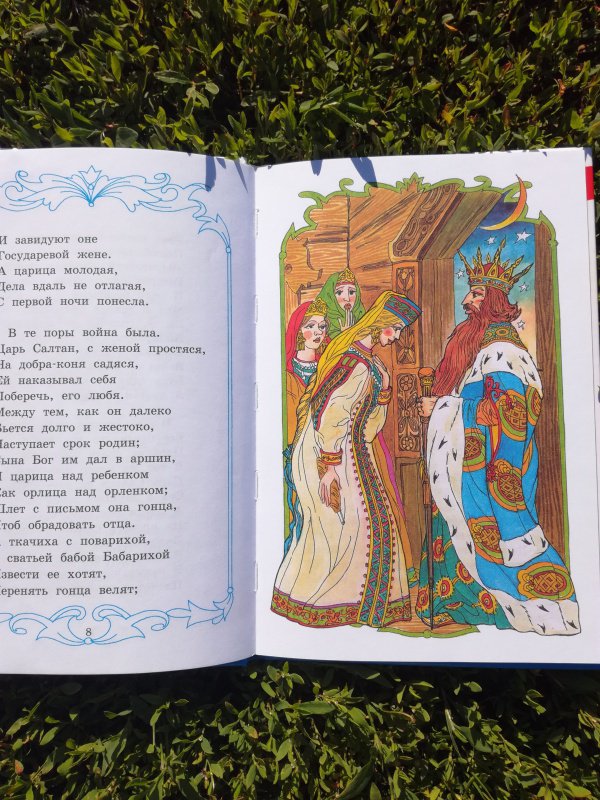 И завидуют оне
Государевой жене.
А царица молодая,
Дела вдаль не отлагая,
С первой ночи понесла.
В те поры война была.
Царь Салтан, с женой простяся,
На добра-коня садяся,
Ей наказывал себя
Поберечь, его любя.
Между тем, как он далеко
Бьется долго и жестоко,
Наступает срок родин;
Сына Бог им дал в аршин,
И царица над ребенком
Как орлица над орленком;
Шлет с письмом она гонца,
Чтоб обрадовать отца.
А ткачиха с поварихой,
сватьей бабой Бабарихой
Извести ее хотят,
Перенять гонца велят;
8